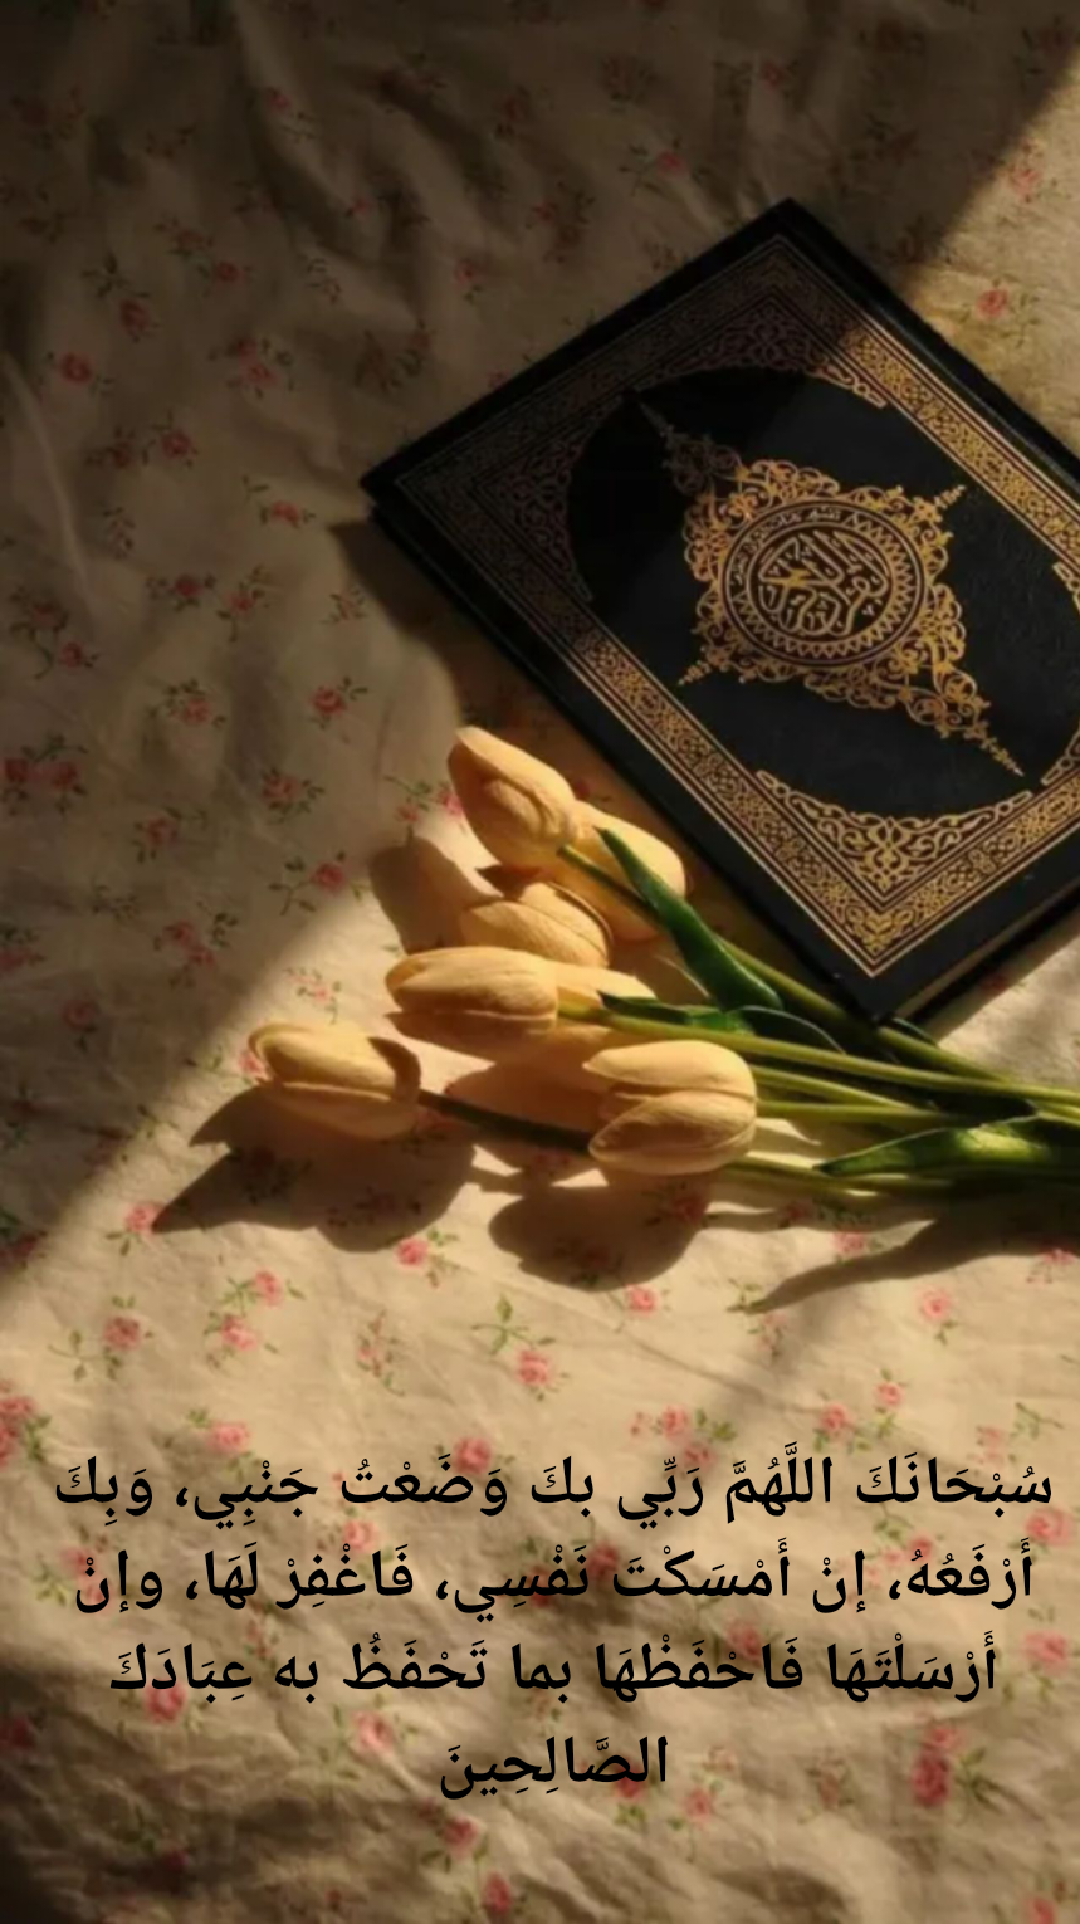 سُبْحَانَكَ اللَّهُمَّ رَبِّي بكَ وَضَعْتُ جَنْبِي، وَبِكَ
أَرْفَعُهُ، إنْ أَمْسَكْتَ نَفْسِي، فَاغْفِرْ لَهَا، وإنْ
أَرْسَلْتَهَا فَاحْفَظْهَا بما تَحْفَظُ به عِبَادَكَ
الصَّالِحِينَ